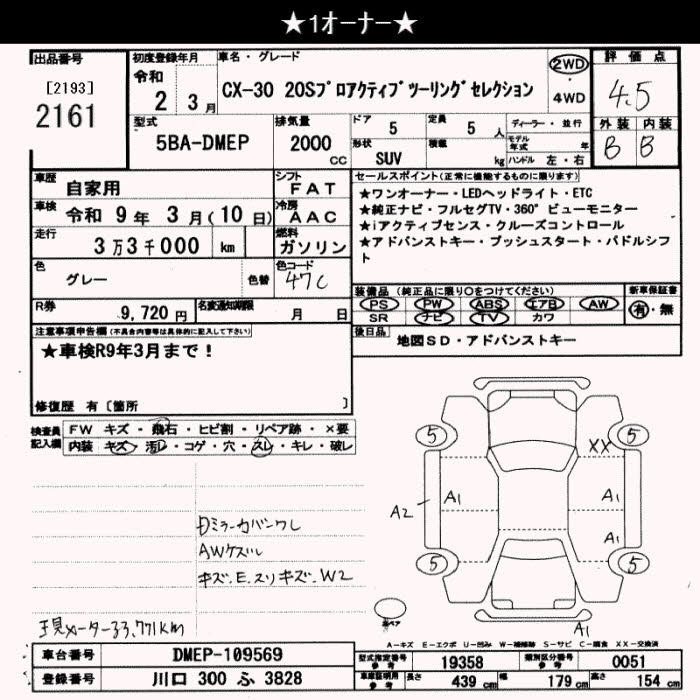 ★1オーナー★
出品番号
[2193]
2161
初度登録年月
令和
2 3月
車名・グレード
CX-30 20Sプロアクティブツーリングセレクション
2WD
4WD
評価点
4.5
外装 内装
B B
型式
5BA-DMEP
排気量
2000
cc
ドア
5
定員
5 人
形状
SUV
積載
kg
ディーラー・並行
モデル年式 年
ハンドル 左・右
車歴
自家用
シフト
FAT
車検
令和 9年 3月(10日)
冷房
AAC
走行
3万3千000 km
燃料
ガソリン
色
グレー
色替
色コード
47C
R券
9,720円
名変通知期限
月 日
セールスポイント(正常に機能するものに限ります)
★ワンオーナー・LEDヘッドライト・ETC
★純正ナビ・フルセグTV・360°ビューモニター
★iアクティブセンス・クルーズコントロール
★アドバンストキー・プッシュスタート・パドルシフ
ト
装備品(純正品に限り○をつけてください)
新車保証書
PS PW ABS エアB AW
SR ナビ TV カワ
有・無
後日品
地図SD・アドバンストキー
注意事項申告欄(不具合内容等は具体的に記入して下さい)
★車検R9年3月まで!
修復歴 有〔箇所 〕
検査員記入欄
FW キズ・飛石・ヒビ割・リペア跡・×要
内装 キズ・汚れ・コゲ・穴・スレ・キレ・破レ
AWケズレ
キズ.E.スリキズ.W2
現メーター33,771km
5 5
XX
A1 A1
A2
A1
5 5
A1
A-キズ E-エクボ U-凹み W-補修跡 S-サビ C-腐食 XX-交換済
車台番号
DMEP-109569
登録番号
川口 300 ふ 3828
型式指定番号
参考
19358
類別区分番号
参考
0051
長さ
439 cm
幅
179 cm
高さ
154 cm